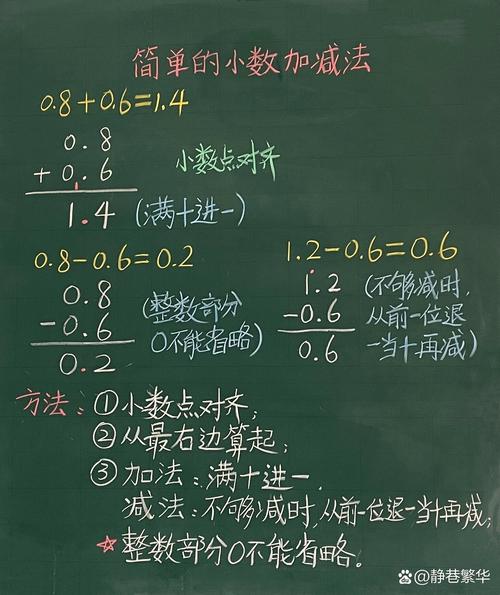 简单的小数加减法
0.8+0.6=1.4
0.8
+0.6
1.4
小数点对齐
(满十进一)
0.8-0.6=0.2
0.8
-0.6
0.2
(整数部分
0不能省略)
1.2-0.6=0.6
1.2
-0.6
0.6
(不够减时,
从前一位退
一当十再减)
方法:①小数点对齐;
②从最右边算起;
③加法:满十进一.
减法:不够减时,从前一位退一当十再减;
☆整数部分0不能省略。
@静巷繁华